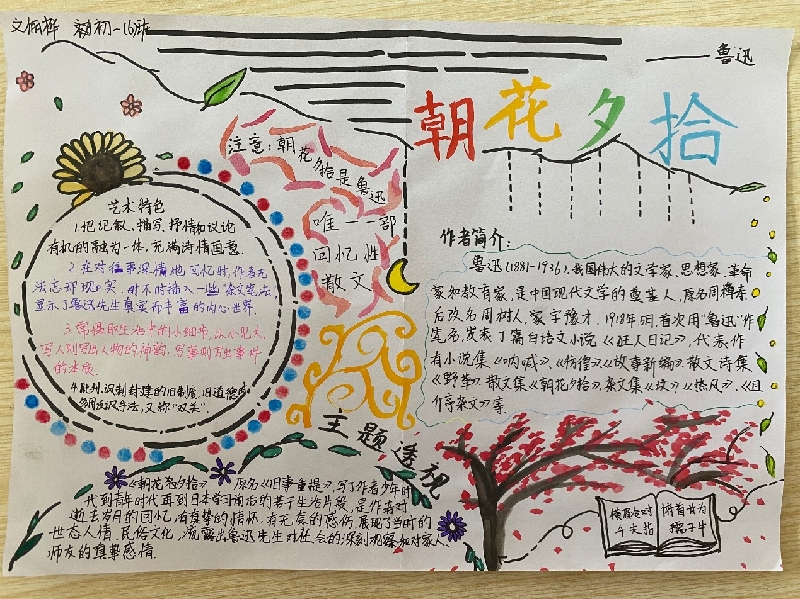 文佩桦 初一16班
——鲁迅
朝花夕拾
注意：朝花夕拾是鲁迅
唯一一部
回忆性
散文
艺术特色
1.把记叙、描写、抒情和议论
有机的融为一体，充满诗情画意
2.在对往事深情地回忆时，作者无
法忘却现实，时不时插入一些杂文笔法，
显示了鲁迅先生真实而丰富的内心世界.
3.常摄取生活中的小细节，以小见大，
写人则写出人物的神韵，写事则写出事件
的本质.
4.批判、讽刺封建的旧制度、旧道德时
多用反讽手法，又称"双关"
作者简介：
鲁迅(1881-1936)，我国伟大的文学家、思想家、革命
家和教育家，是中国现代文学的奠基人，原名周樟寿
后改名周树人，字豫才，1918年5月，首次用"鲁迅"作
笔名，发表了篇白话文小说《狂人日记》，代表作
有小说集《呐喊》、《彷徨》《故事新编》散文诗集
《野草》散文集《朝花夕拾》、杂文集《坟》《热风》、《且
介亭杂文》等
主题透视
《朝花夕拾》原名《旧事重提》，写了作者少年时
代到青年时代再到日本学习前后的若干生活片段，是作者对
逝去岁月的回忆，有真挚的情怀，有无奈的感伤，展现了当时的
世态人情、民俗文化，流露出鲁迅先生对社会的深刻观察和对家人、
师友的真挚感情.
横眉冷对
千夫指
俯首甘为
孺子牛